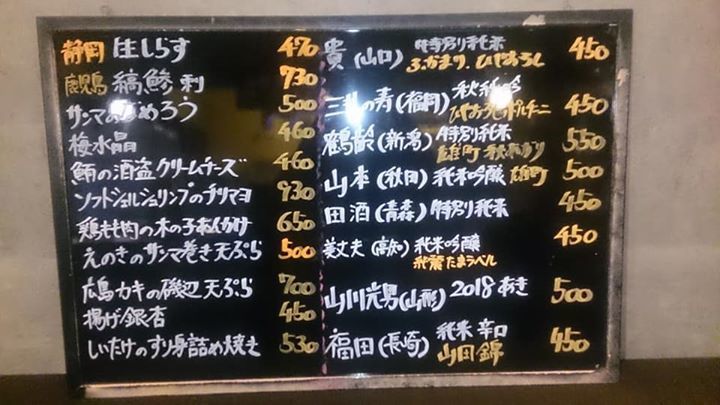 静岡 生しらす 470
鹿児島 縞鯵 刺 730
サンマのなめろう 500
梅水晶 460
鮪の酒盗クリームチーズ 460
ソフトシェルシュリンプのチリマヨ 930
鶏もも肉の木の子あんかけ 650
えのきのサンマ巻き天ぷら 500
広島カキの磯辺天ぷら 700
揚げ銀杏 450
しいたけのすり身詰め焼き 530
貴(山口) 特別純米 ふかまり、ひやおろし 450
三井の寿(福岡) 秋純吟 ひやおろしポルチーニ 450
鶴齢(新潟) 特別純米 雄町 秋あがり 550
山本(秋田) 純米吟醸 雄町 500
田酒(青森) 特別純米 450
美丈夫(高知) 純米吟醸 純麗たまラベル 450
山川光男(山形) 2018 あき 500
福田(長崎) 純米 辛口 山田錦 450